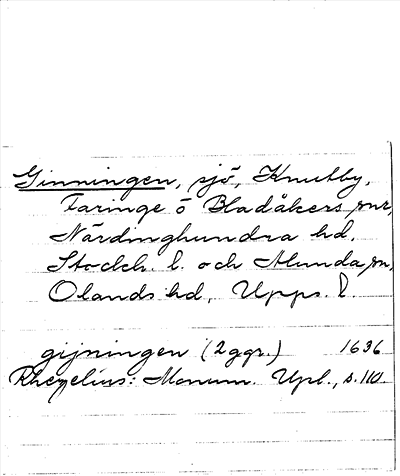 Ginningen, sjö, Knutby,
Faringe o Bladåkers snr,
Närdinghundra hd,
Stockh. l. och Alunda sn,
Olands hd, Upps. l.
gijningen (2 ggr.) 1636
Rhezelius: Monum. Upl., s. 110.